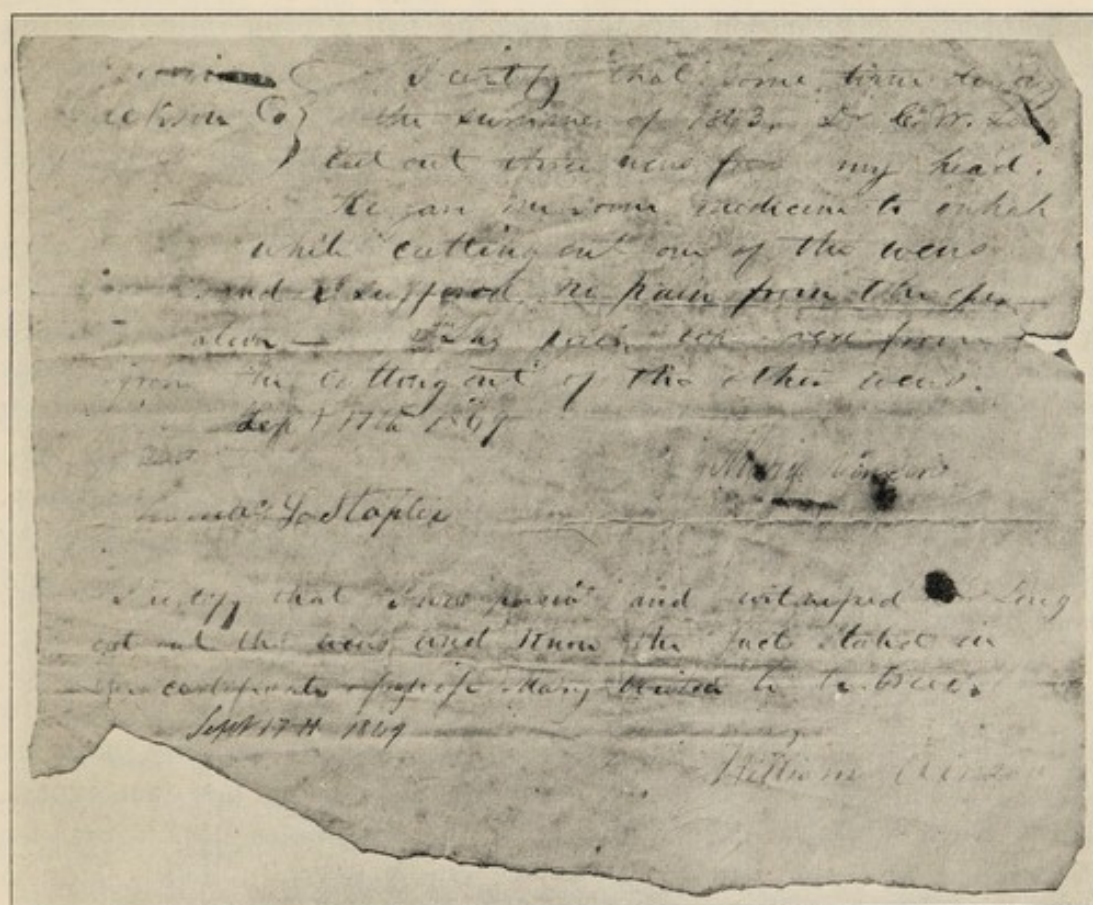 I certify that some time
Jackson Co the summer of 1843. Dr C. W.
cut out three wens from my head.
He gave me some medicine to inhale
while cutting out one of the wens
and I suffered no pain from the oper
ation
from the cutting out of the other wens.
Sept 17th 1849
Mary Vinson
Staples
I certify that I was present and witnessed Long
cut out the wens and know the facts stated in
certificate of Mary Vinson to be true.
Sept 17th 1849
William Vinson